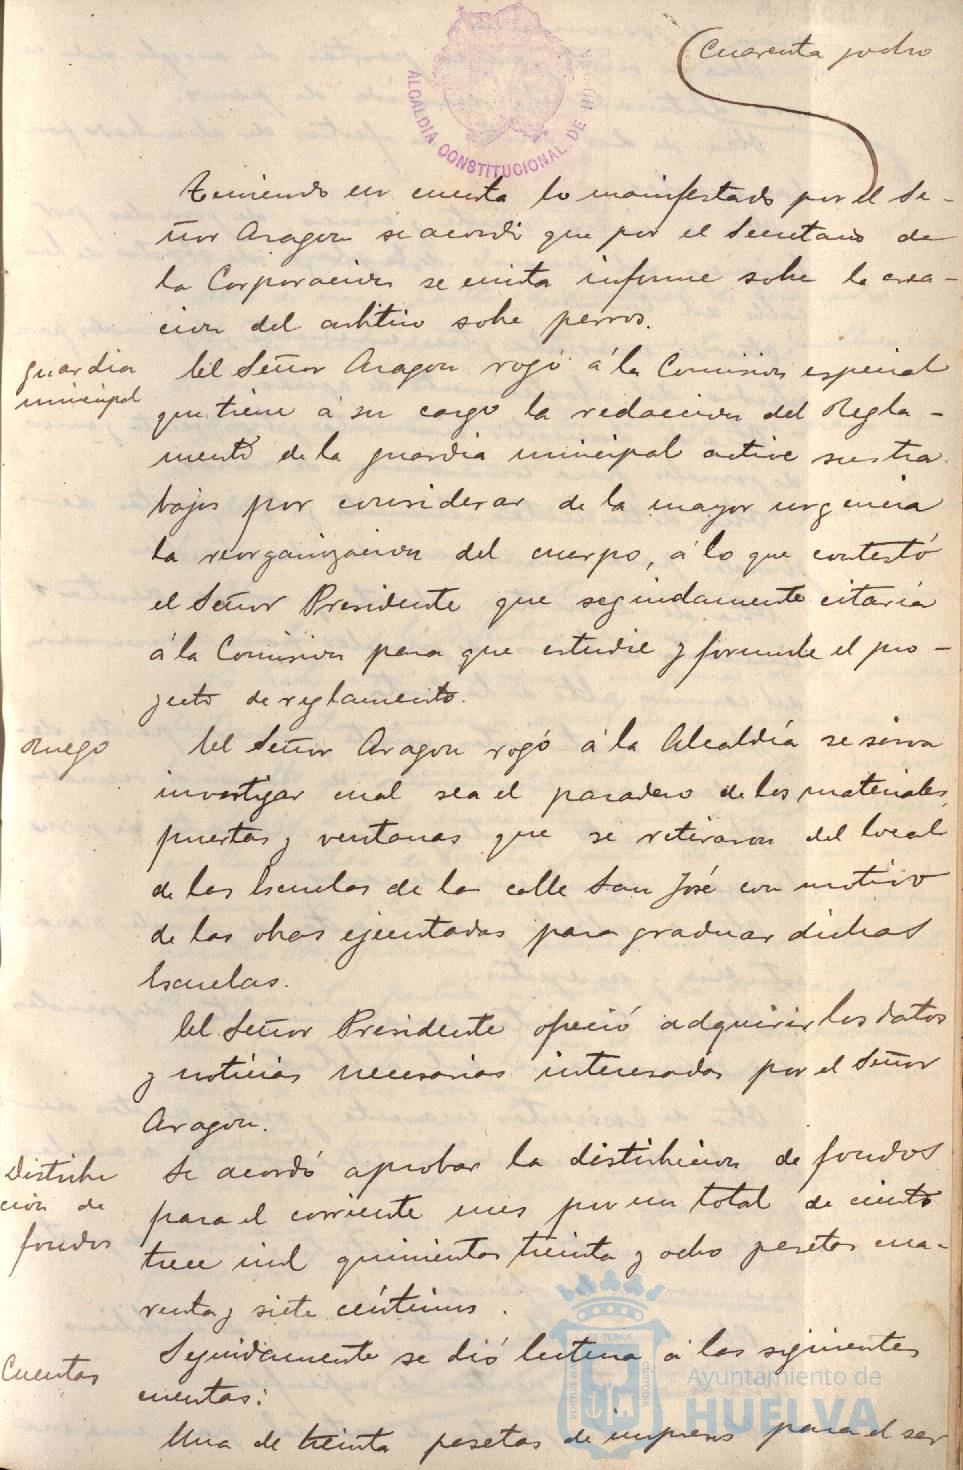 Cuarenta y ocho
ALCALDIA CONSTITUCIONAL DE HUELVA
Teniendo en cuenta lo manifestado por el Se-
ñor Aragon se acordó que por el Secretario de
la Corporacion se emita informe sobre la crea-
cion del arbitrio sobre perros.
guardia
municipal
El Señor Aragon rogó á la Comision especial
que tiene á su cargo la redaccion del Regla-
mento de la guardia municipal active sus tra
bajos por considerar de la mayor urgencia
la reorganizacion del cuerpo, á lo que contestó
el Señor Presidente que seguidamente citaria
á la Comision para que estudie y formule el pro-
yecto de reglamento.
Ruego
El Señor Aragon rogó á la Alcaldía se sirva
investigar cual sea el paradero de los materiales,
puertas y ventanas que se retiraron del local
de las Escuelas de la calle San José con motivo
de las obras ejecutadas para graduar dichas
Escuelas.
El Señor Presidente ofreció adquirir los datos
y noticias necesarias interesadas por el Señor
Aragon.
Distribu
cion de
fondos
Se acordó aprobar la distribucion de fondos
para el corriente mes por un total de ciento
trece mil quinientas treinta y ocho pesetas cua-
renta y siete céntimos.
Cuentas
Seguidamente se dió lectura á las siguientes
cuentas:
Una de treinta pesetas de impresos para el ser
Ayuntamiento de
HUELVA